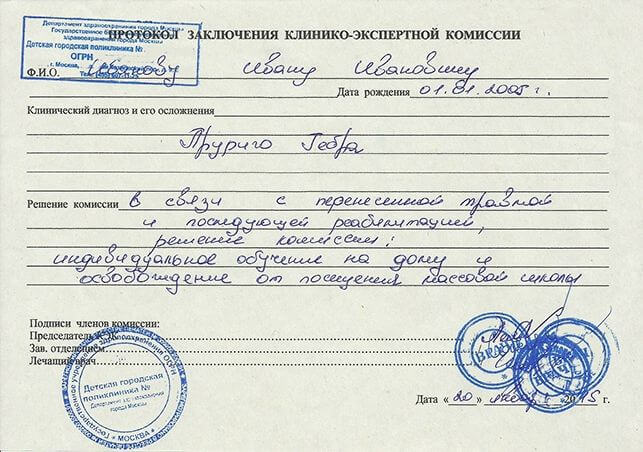 Департамент здравоохранения города Москвы
здравоохранения города Москвы
Детская городская поликлиника №
ОГРН
г. Москва,
ПРОТОКОЛ ЗАКЛЮЧЕНИЯ КЛИНИКО-ЭКСПЕРТНОЙ КОМИССИИ
Ф.И.О. Иванову Ивану Ивановичу
Дата рождения 01.01.2005 г.
Клинический диагноз и его осложнения
Пруриго Гебра
Решение комиссии в связи с перенесенной травмой
и последующей реабилитацией,
решение комиссии:
индивидуальное обучение на дому и
освобождение от посещения массовой школы
Подписи членов комиссии:
Председатель КЭК
Зав. отделением
Лечащий врач
Детская городская
поликлиника №
Департамент здравоохранения
города Москвы
* МОСКВА *
Дата « 20 » 2015 г.